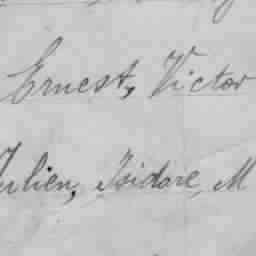 Ernest, Victor
Julien, Isidore, M